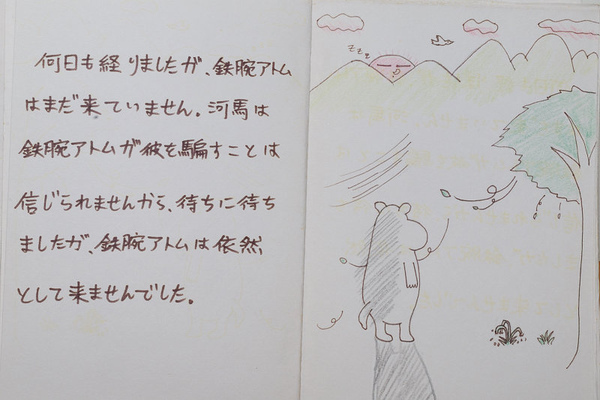 何日も経りましたが、鉄腕アトム
はまだ来ていません。河馬は
鉄腕アトムが彼を騙すことは
信じられませんから、待ちに待ち
ましたが、鉄腕アトムは依然
として来ませんでした。
zzz